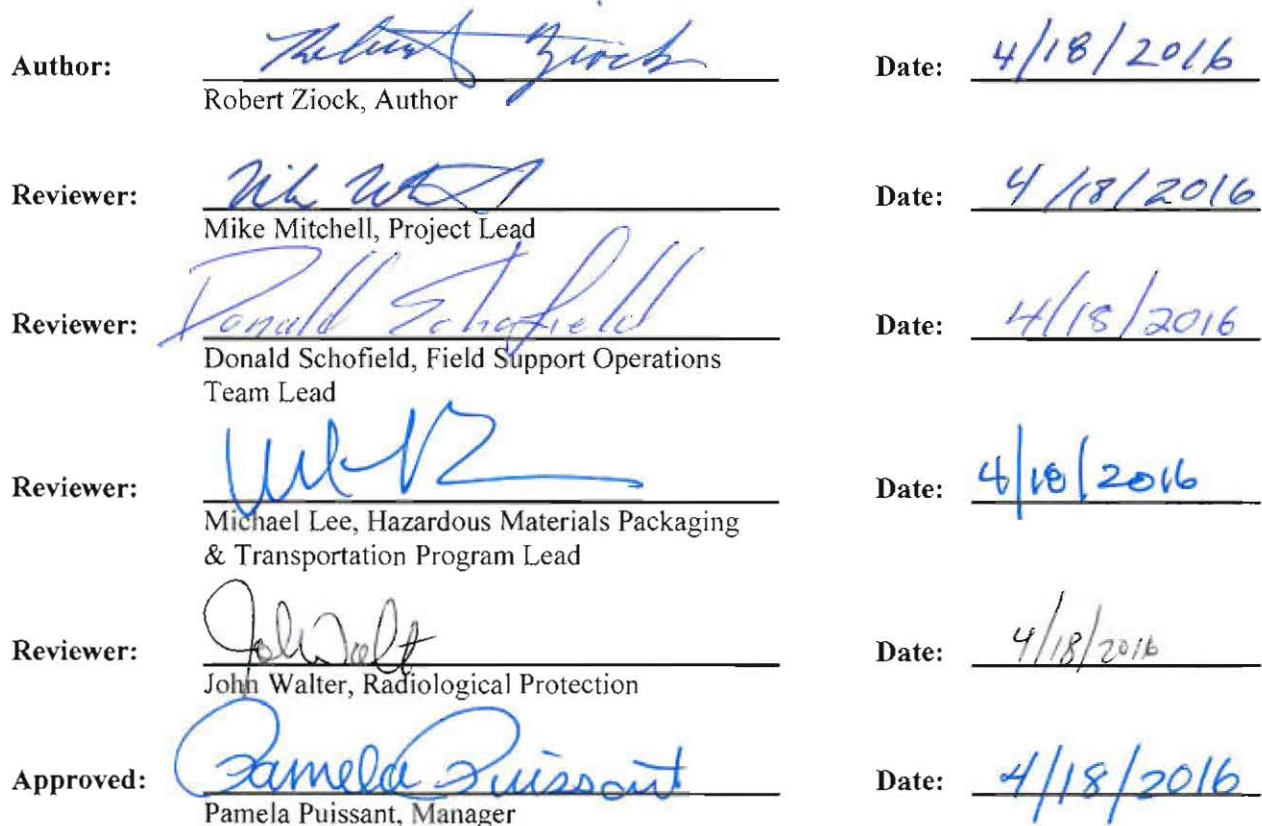 Author: Robert Ziock Date: 4/18/2016
Robert Ziock, Author
Reviewer: Date: 4/18/2016
Mike Mitchell, Project Lead
Reviewer: Donald Schofield Date: 4/18/2016
Donald Schofield, Field Support Operations
Team Lead
Reviewer: Date: 4/18/2016
Michael Lee, Hazardous Materials Packaging
& Transportation Program Lead
Reviewer: John Walt Date: 4/18/2016
John Walter, Radiological Protection
Approved: Pamela Puissant Date: 4/18/2016
Pamela Puissant, Manager